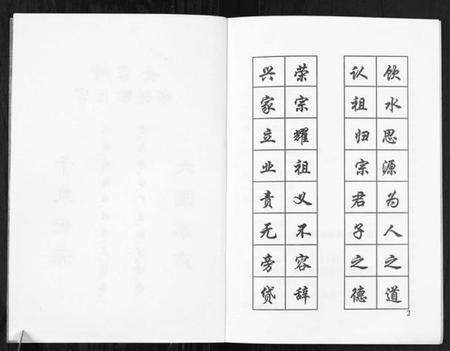 饮水思源为人之道
认祖归宗君子之德
荣宗耀祖义不容辞
兴家立业责无旁贷
2